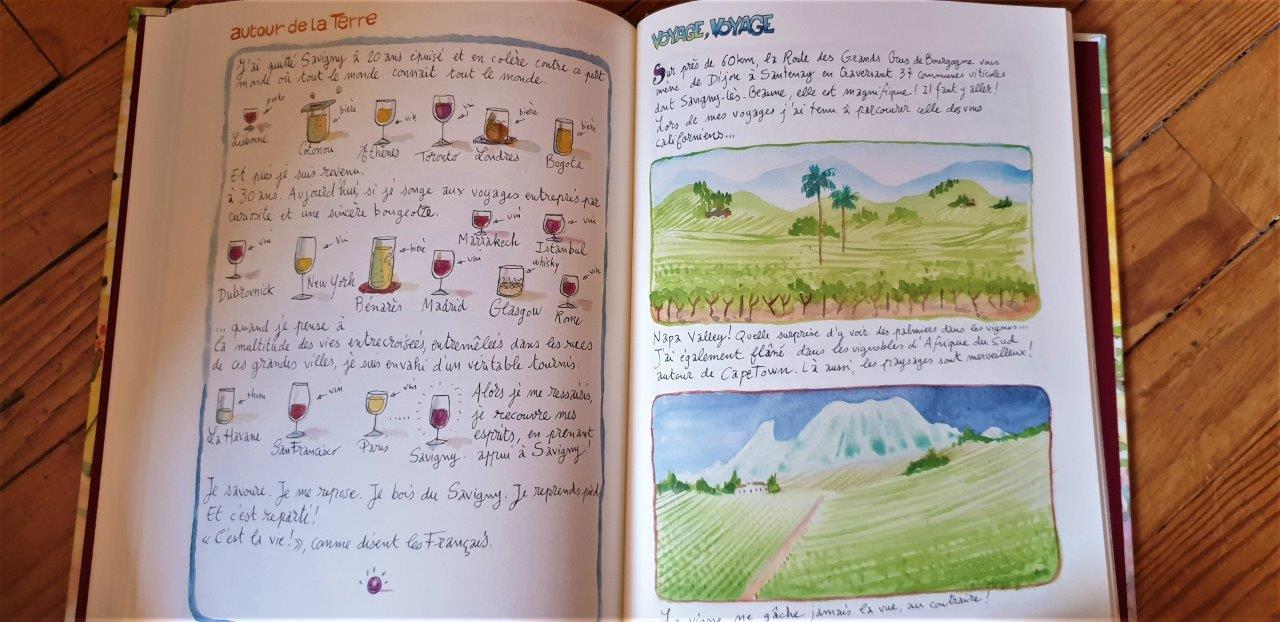 autour de la Terre
J'ai quitté Savigny à 20 ans épuisé et en colère contre ce petit
monde où tout le monde connaît tout le monde.
porto
bière
vin
vin
bière
bière
Lisbonne
Cotonou
Athènes
Toronto
Londres
Bogota
Et puis je suis revenu,
à 30 ans. Aujourd'hui, si je songe aux voyages entrepris par
curiosité et une sincère bougeotte.
vin
vin
Marrakech
Istanbul
vin
vin
bière
vin
whisky
vin
Dubrovnick
New York
Bénarès
Madrid
Glasgow
Rome
... quand je pense à
la multitude des vies entrecroisées, entremêlées dans les rues
de ces grandes villes, je suis envahi d'un véritable tournis.
rhum
vin
vin
La Havane
San Francisco
Paris
.....
Savigny
Alors je me ressaisis,
je recouvre mes
esprits, en prenant
appui à Savigny!
Je savoure. Je me repose. Je bois du Savigny. Je reprends pied
Et c'est reparti!
« C'est la vie! », comme disent les Français.
VOYAGE, VOYAGE
Sur près de 60km, la Route des Grands Crus de Bourgogne vous
mène de Dijon à Santenay en traversant 37 communes viticoles
dont Savigny-lès-Beaune, elle est magnifique! Il faut y aller!
Lors de mes voyages j'ai tenu à parcourir celle des vins
californiens...
Napa Valley! Quelle surprise d'y voir des palmiers dans les vignes...
J'ai également flâné dans les vignobles d'Afrique du Sud
autour de CapeTown. Là aussi, les paysages sont merveilleux!
La vigne ne gâche jamais la vue, au contraire!